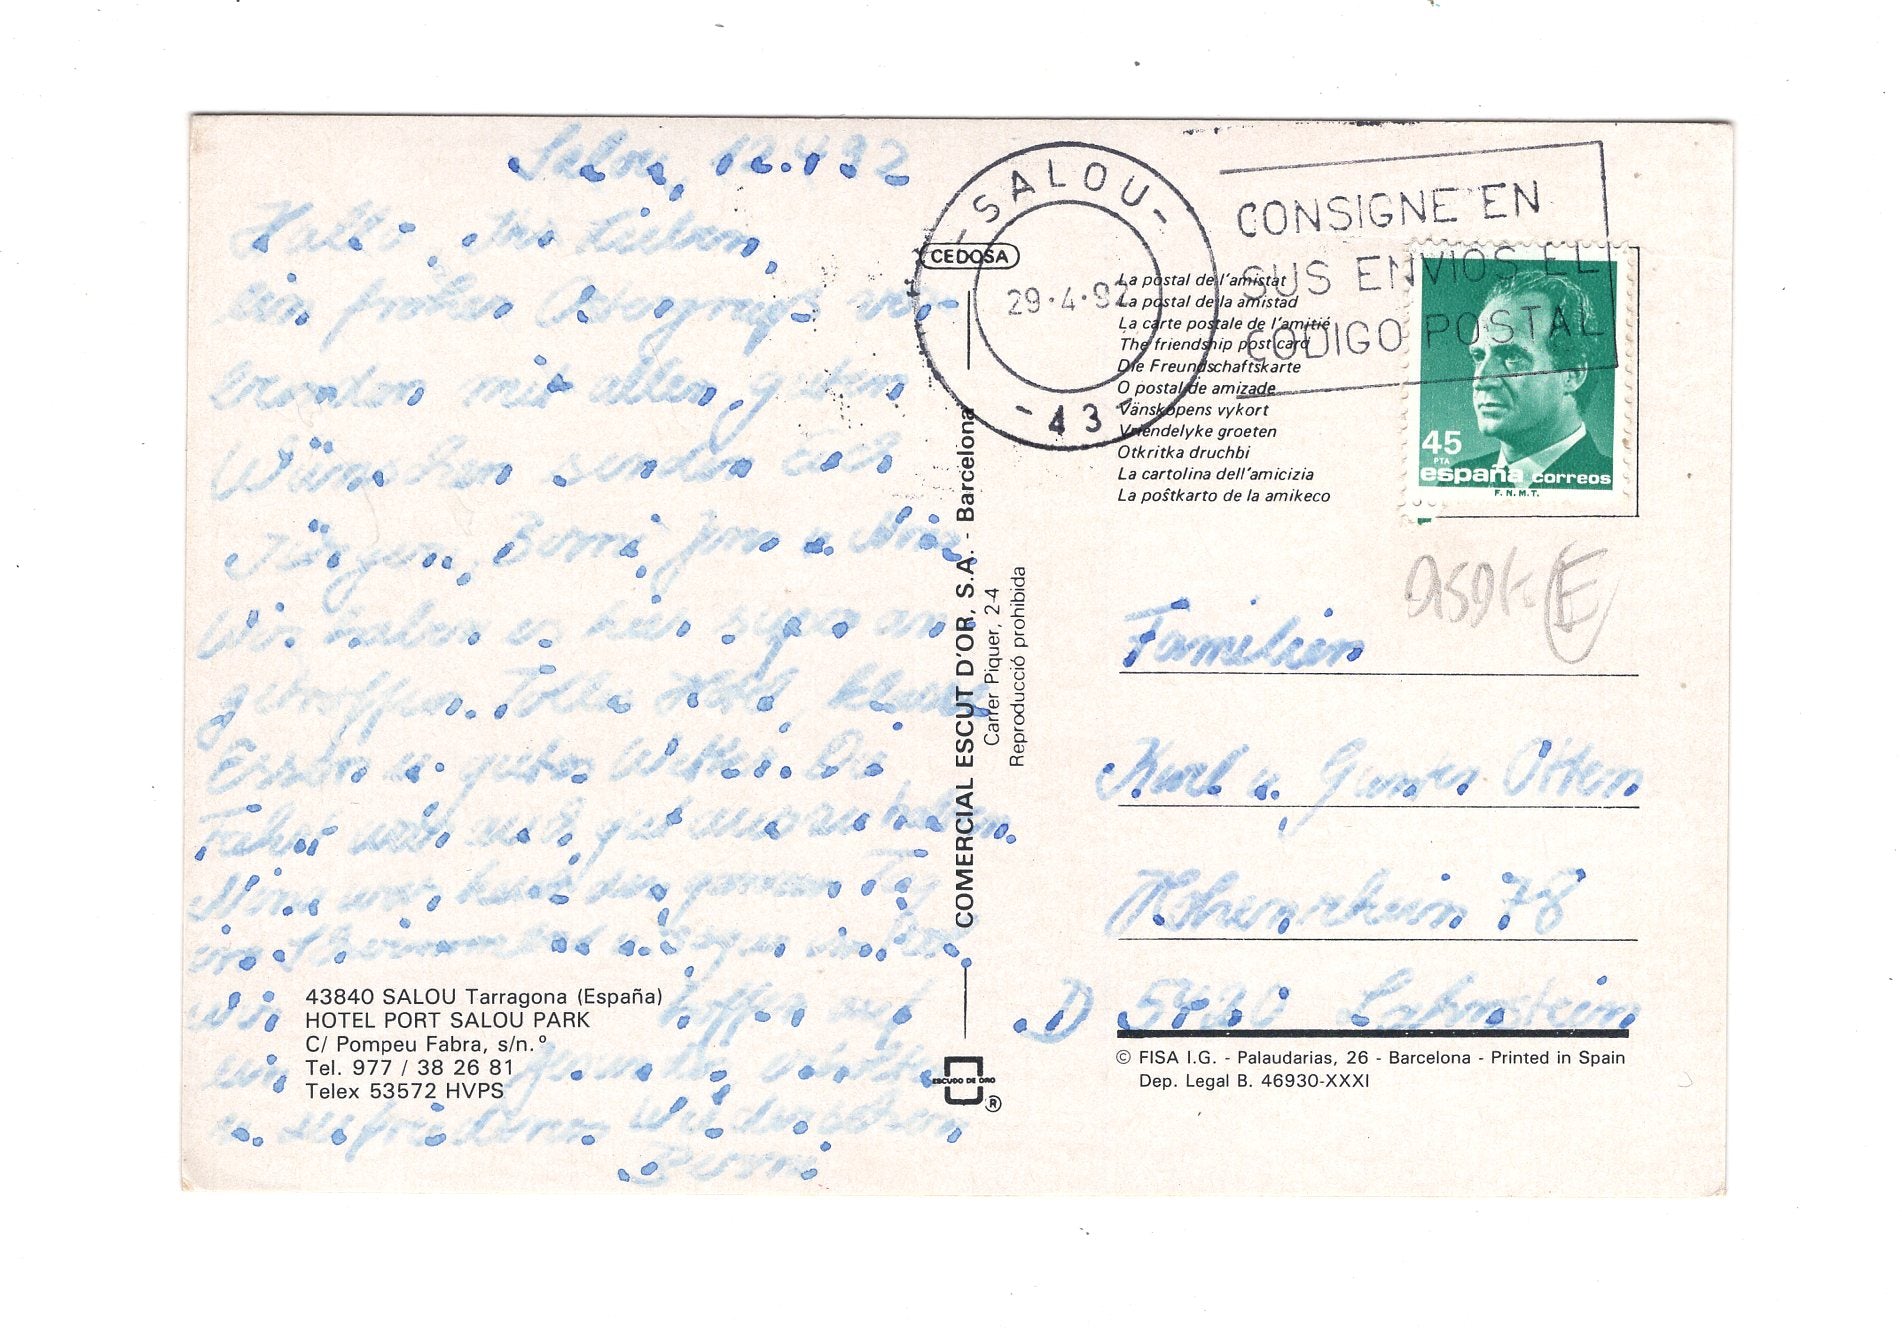 Salou, 12.4.92
Hallo, Ihr Lieben,
ein frohen Ostergruß ver-
bunden mit allen guten
Wünschen senden Euch
Jürgen, Berni, Jens u. Nina
Wir haben es hier super an
getroffen. Tolle Hotel,
Essen u. gutes Wetter. Die
Fahrt war auch gut auszuhalten.
Nina war heute den ganzen Tag
im Schwimmbad
Wir hoffen auf
ein
u. zufriedenes Wiedersehen
Berni
43840 SALOU Tarragona (España)
HOTEL PORT SALOU PARK
C/ Pompeu Fabra, s/n.º
Tel. 977 / 38 26 81
Telex 53572 HVPS
CEDOSA
COMERCIAL ESCUT D'OR, S.A. - Barcelona
Carrer Piquer, 2-4
Reproducció prohibida
ESCUDO DE ORO
®
-SALOU-
29·4·92
-43-
CONSIGNE EN
SUS ENVIOS EL
CODIGO POSTAL
La postal de l'amistat
La postal de la amistad
La carte postale de l'amitié
The friendship post card
Die Freundschaftskarte
O postal de amizade
Vänskapens vykort
Vriendelyke groeten
Otkritka druchbi
La cartolina dell'amicizia
La poŝtkarto de la amikeco
45
PTA
españa correos
F.N.M.T.
E
Familien
Karl u. Günter Otten
Hohenrhein 78
D 5420 Lahnstein
© FISA I.G. - Palaudarias, 26 - Barcelona - Printed in Spain
Dep. Legal B. 46930-XXXI